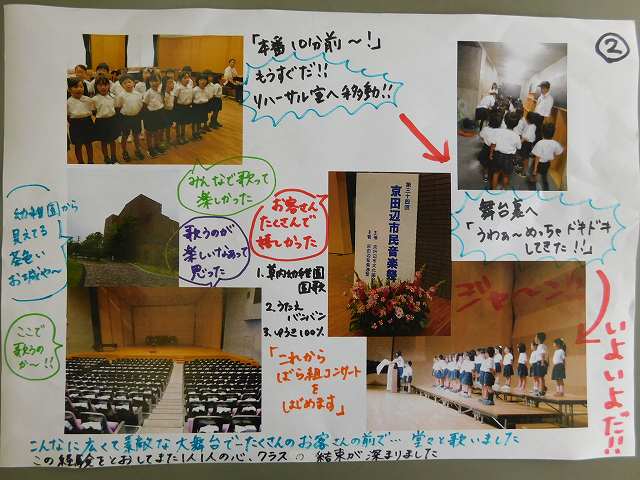 ②
「本番10分前〜!」
もうすぐだ!!
リハーサル室へ移動!!
みんなで歌って
楽しかった
お客さん
たくさんで
嬉しかった
歌うのが
楽しいなあって
思った
幼稚園から
見えてる
茶色い
お城や〜
ここで
歌うの
か〜!!
1. 草内幼稚園
園歌
2. うたえ
バンバン
3. ゆうき100%
「これから
ばら組コンサート
を
はじめます」
第三十四回
京田辺市民音楽祭
舞台裏へ
「うわぁ〜めっちゃドキドキ
してきた!!」
ジャーン
いよいよだ!!
こんなに広くて素敵な大舞台でたくさんのお客さんの前で… 堂々と歌いました
この経験をとおしてまた1人1人の心、クラスの 結束が深まりました